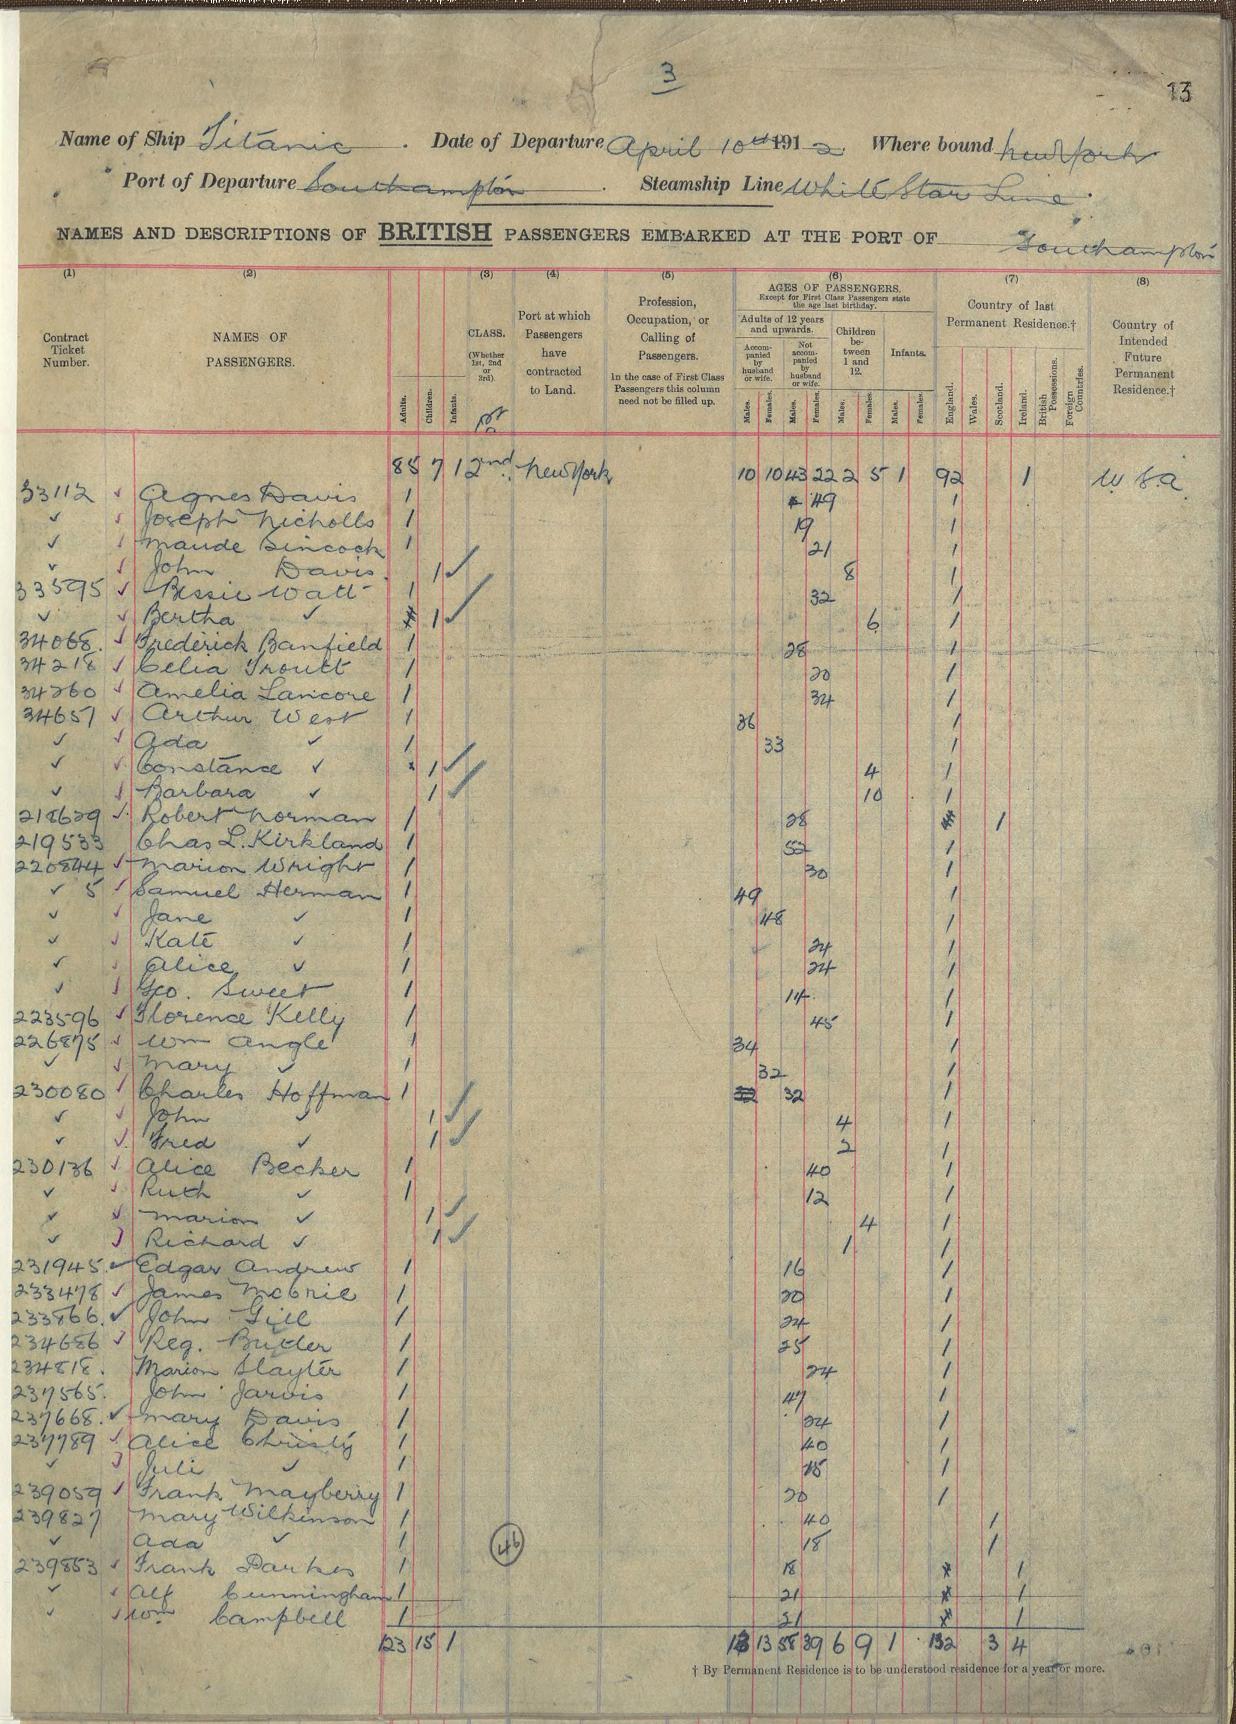 3
13
Name of Ship Titanic. Date of Departure April 10th 1912 Where bound New York
Port of Departure Southampton. Steamship Line White Star Line.
NAMES AND DESCRIPTIONS OF BRITISH PASSENGERS EMBARKED AT THE PORT OF Southampton
(1) (2) (3) (4) (5) (6) (7) (8)
Contract Ticket Number.
NAMES OF PASSENGERS.
Adults. Children. Infants.
CLASS. (Whether 1st, 2nd or 3rd).
Port at which Passengers have contracted to Land.
Profession, Occupation, or Calling of Passengers.
In the case of First Class Passengers this column need not be filled up.
AGES OF PASSENGERS.
Except for First Class Passengers state the age last birthday.
Adults of 12 years and upwards.
Accompanied by husband or wife.
Not accompanied by husband or wife.
Children between 1 and 12.
Infants.
Males. Females. Males. Females. Males. Females. Males. Females.
Country of last Permanent Residence.†
England. Wales. Scotland. Ireland. British Possessions. Foreign Countries.
Country of Intended Future Permanent Residence.†
85 7 1 2nd New York 10 10 43 22 2 5 1 92 1 U.S.A.
33112 ✓ Agnes Davis 1 49 1
✓ ✓ Joseph Nicholls 1 19 1
✓ ✓ Maude Sincock 1 21 1
✓ ✓ John Davis 1 ✓ 8 1
33595 ✓ Bessie Watt 1 32 1
✓ ✓ Bertha ✓ 1 ✓ 6 1
34068. ✓ Frederick Banfield 1 28 1
34218 ✓ Celia Troutt 1 20 1
34260 ✓ Amelia Lamcore 1 34 1
34651 ✓ Arthur West 1 36 1
✓ ✓ Ada ✓ 1 33 1
✓ ✓ Constance ✓ 1 ✓ 4 1
✓ ✓ Barbara ✓ 1 ✓ 10 1
218629 ✓ Robert Norman 1 28 1
219533 Chas L. Kirkland 1 52 1
220844 ✓ Marion Wright 1 30 1
✓ 5 ✓ Samuel Herman 1 49 1
✓ ✓ Jane ✓ 1 48 1
✓ ✓ Kate ✓ 1 24 1
✓ ✓ Alice ✓ 1 24 1
✓ ✓ Geo. Sweet 1 14 1
223596 ✓ Florence Kelly 1 45 1
226875 ✓ Wm Angle 1 34 1
✓ ✓ Mary ✓ 1 32 1
230080 ✓ Charles Hoffman 1 32 32 1
✓ ✓ John ✓ 1 ✓ 4 1
✓ ✓ Fred ✓ 1 ✓ 2 1
230136 ✓ Alice Becker 1 40 1
✓ ✓ Ruth ✓ 1 12 1
✓ ✓ Marion ✓ 1 ✓ 4 1
✓ ✓ Richard ✓ 1 ✓ 1 1
231945. ✓ Edgar Andrew 1 16 1
233478 ✓ James McCrie 1 20 1
233866. ✓ John Gill 1 24 1
234686 ✓ Reg. Butler 1 25 1
234818. Marion Slayter 1 24 1
237565. John Jarvis 1 47 1
237668. ✓ Mary Davis 1 24 1
237789 ✓ Alice Christy 1 40 1
✓ ✓ Juli ✓ 1 15 1
239059 ✓ Frank Mayberry 1 20 1
239827 Mary Wilkinson 1 40 1
✓ Ada ✓ 1 18 1
46
239853 ✓ Frank Parkes 1 18 1
✓ ✓ Alf Cunningham 1 21 1
✓ ✓ Wm Campbell 1 21 1
123 15 1 13 58 39 6 9 1 132 3 4
† By Permanent Residence is to be understood residence for a year or more.